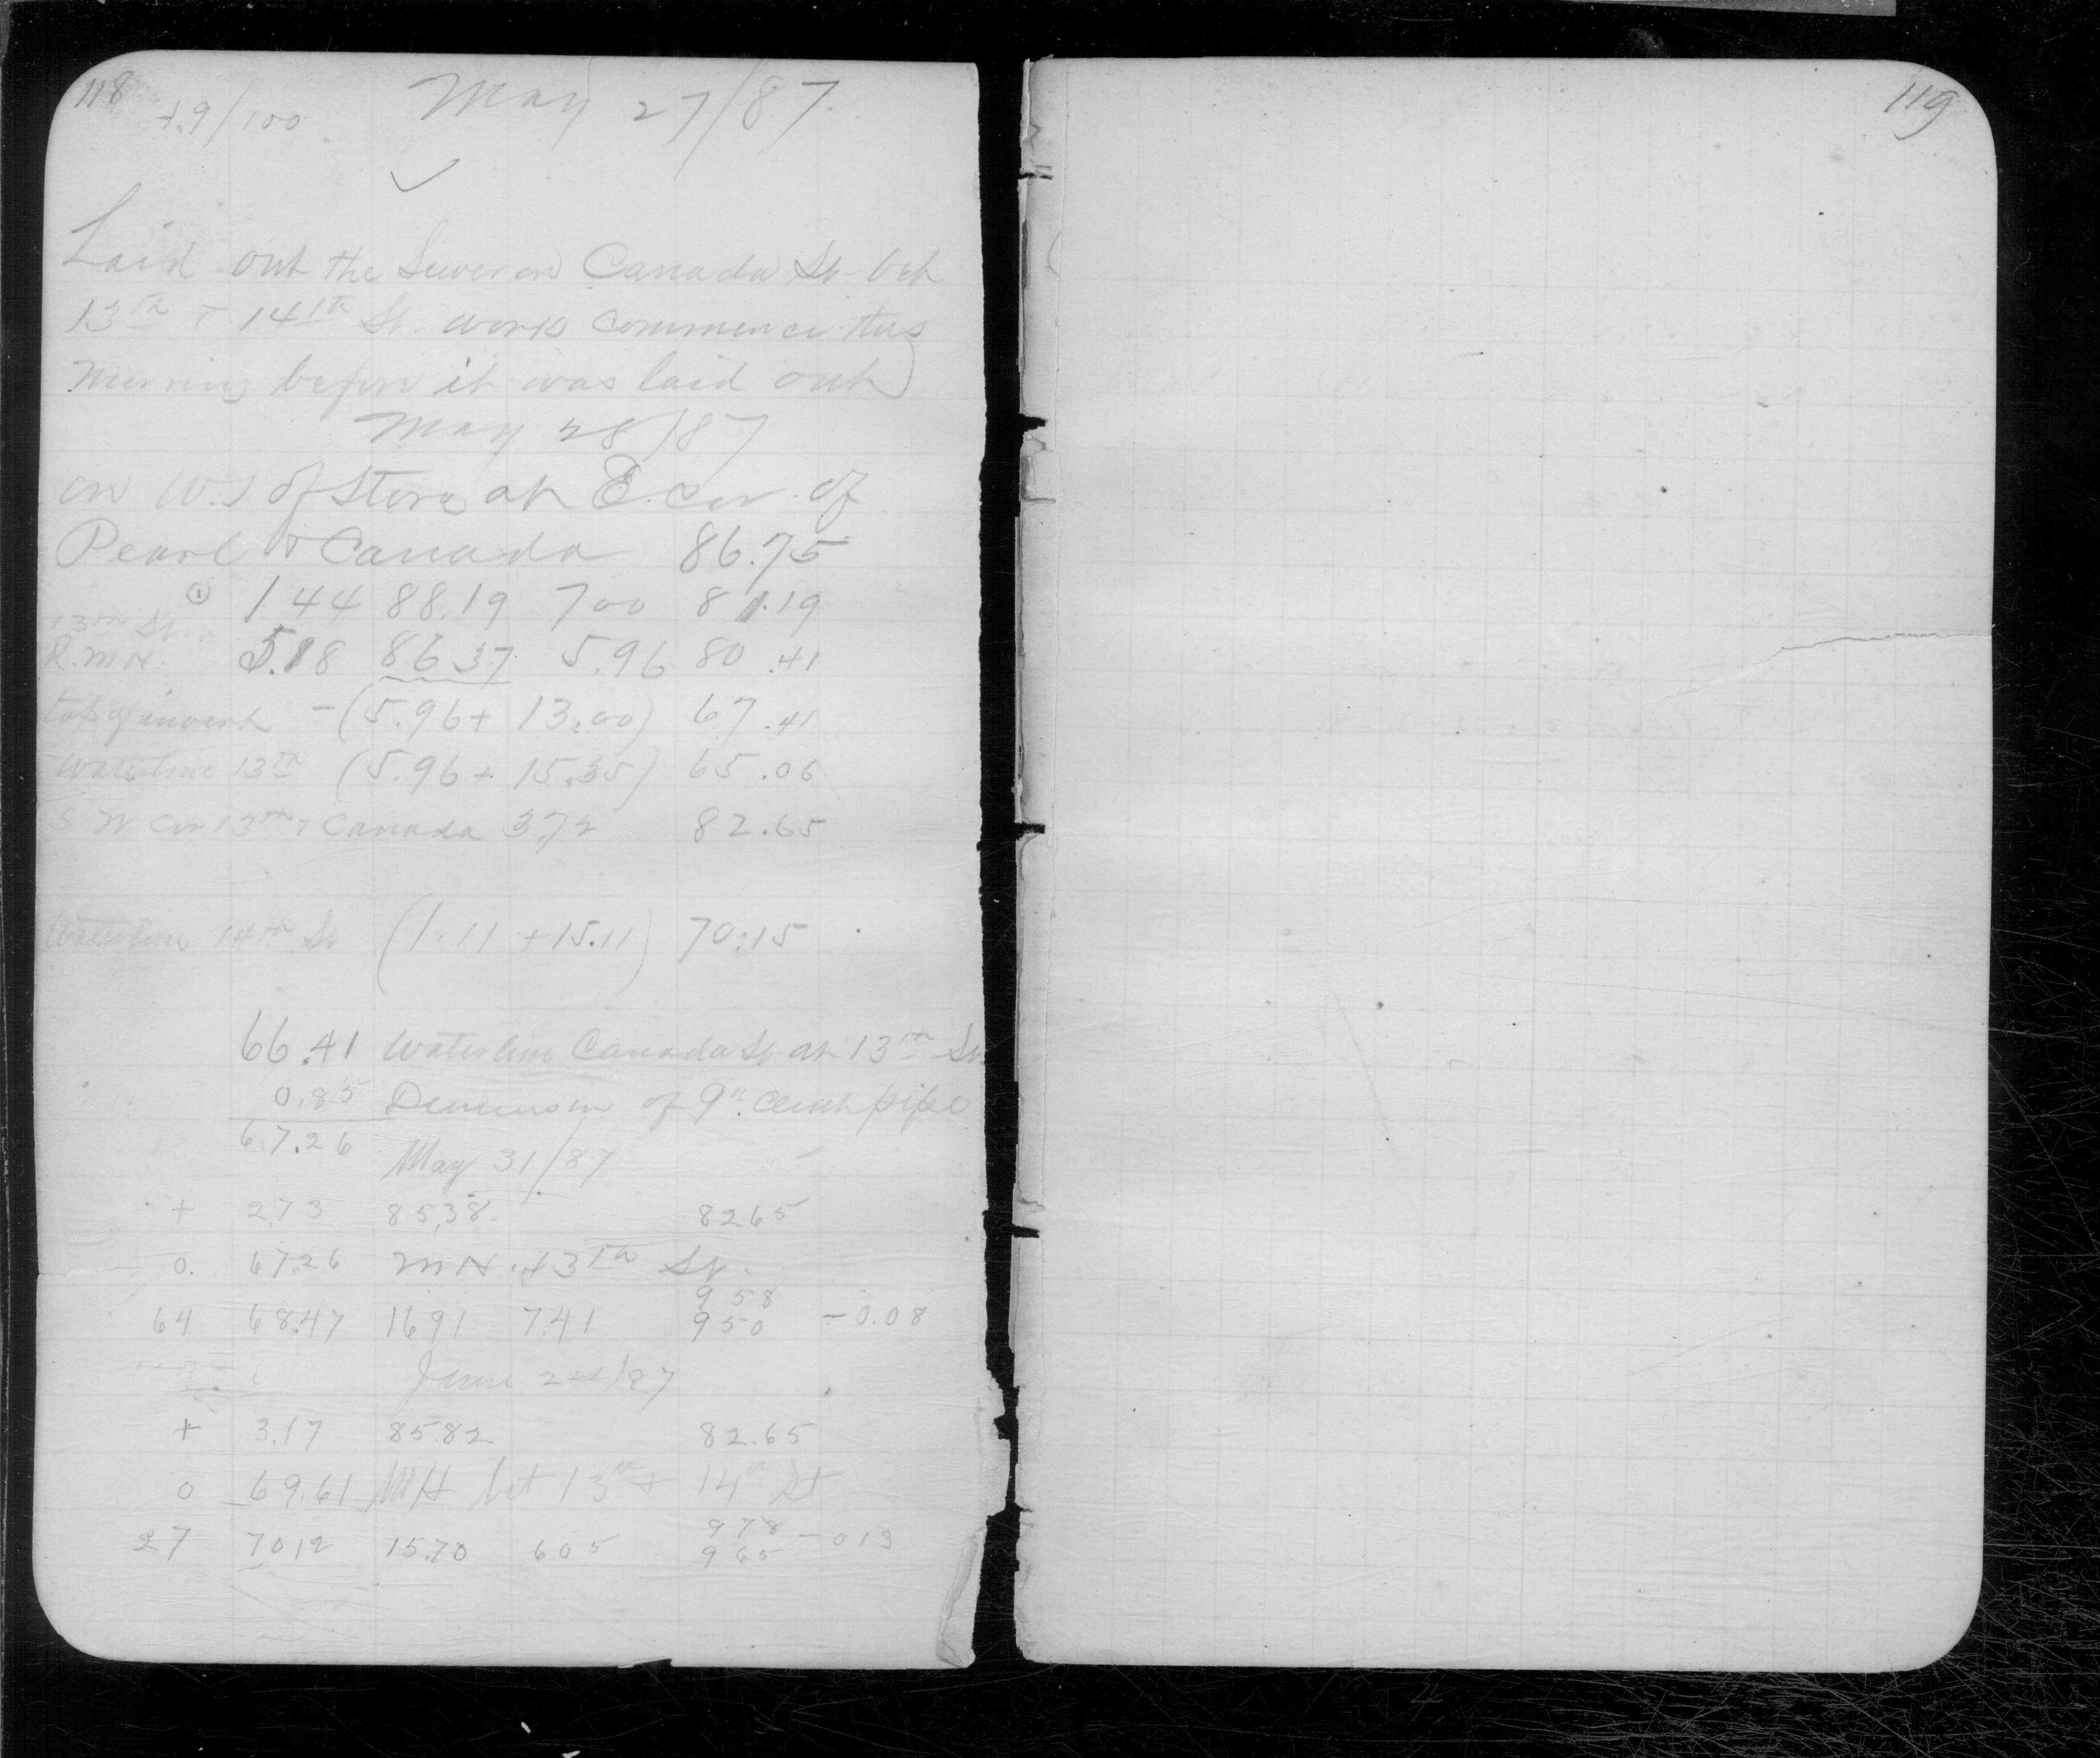 118
+.9/100 May 27/87.
✓
Laid out the Sewer on Canada St. bet
13th & 14th St. work commence this
Morning before it was laid out)
May 28/87
on W.S of Store at E. cor. of
Pearl & Canada 86.75
① 1 44 88.19 700 81.19
13th St.
R.M.H. 5.18 86 37 5.96 80.41
top of invert -(5.96+ 13.00) 67.41
Waterline 13th (5.96+ 15.35) 65.06
S W cor 13th & Canada 3.72 82.65
Waterline 14th St (1.11 +15.11) 70.15
66.41 Waterline Canada St. at 13th St.
0.85 of 9" pipe
67.26
May 31/87
+ 2.73 85.38 82 65
0. 67.26 M H. 13th St.
9 58
64 68.47 16 91 7.41 9 50 -0.08
June 2nd/87
+ 3.17 85 82 82.65
0 69.61 MH bet 13th & 14th St
9 78
27 70 12 15.70 6 05 9 65 - 0 13
119